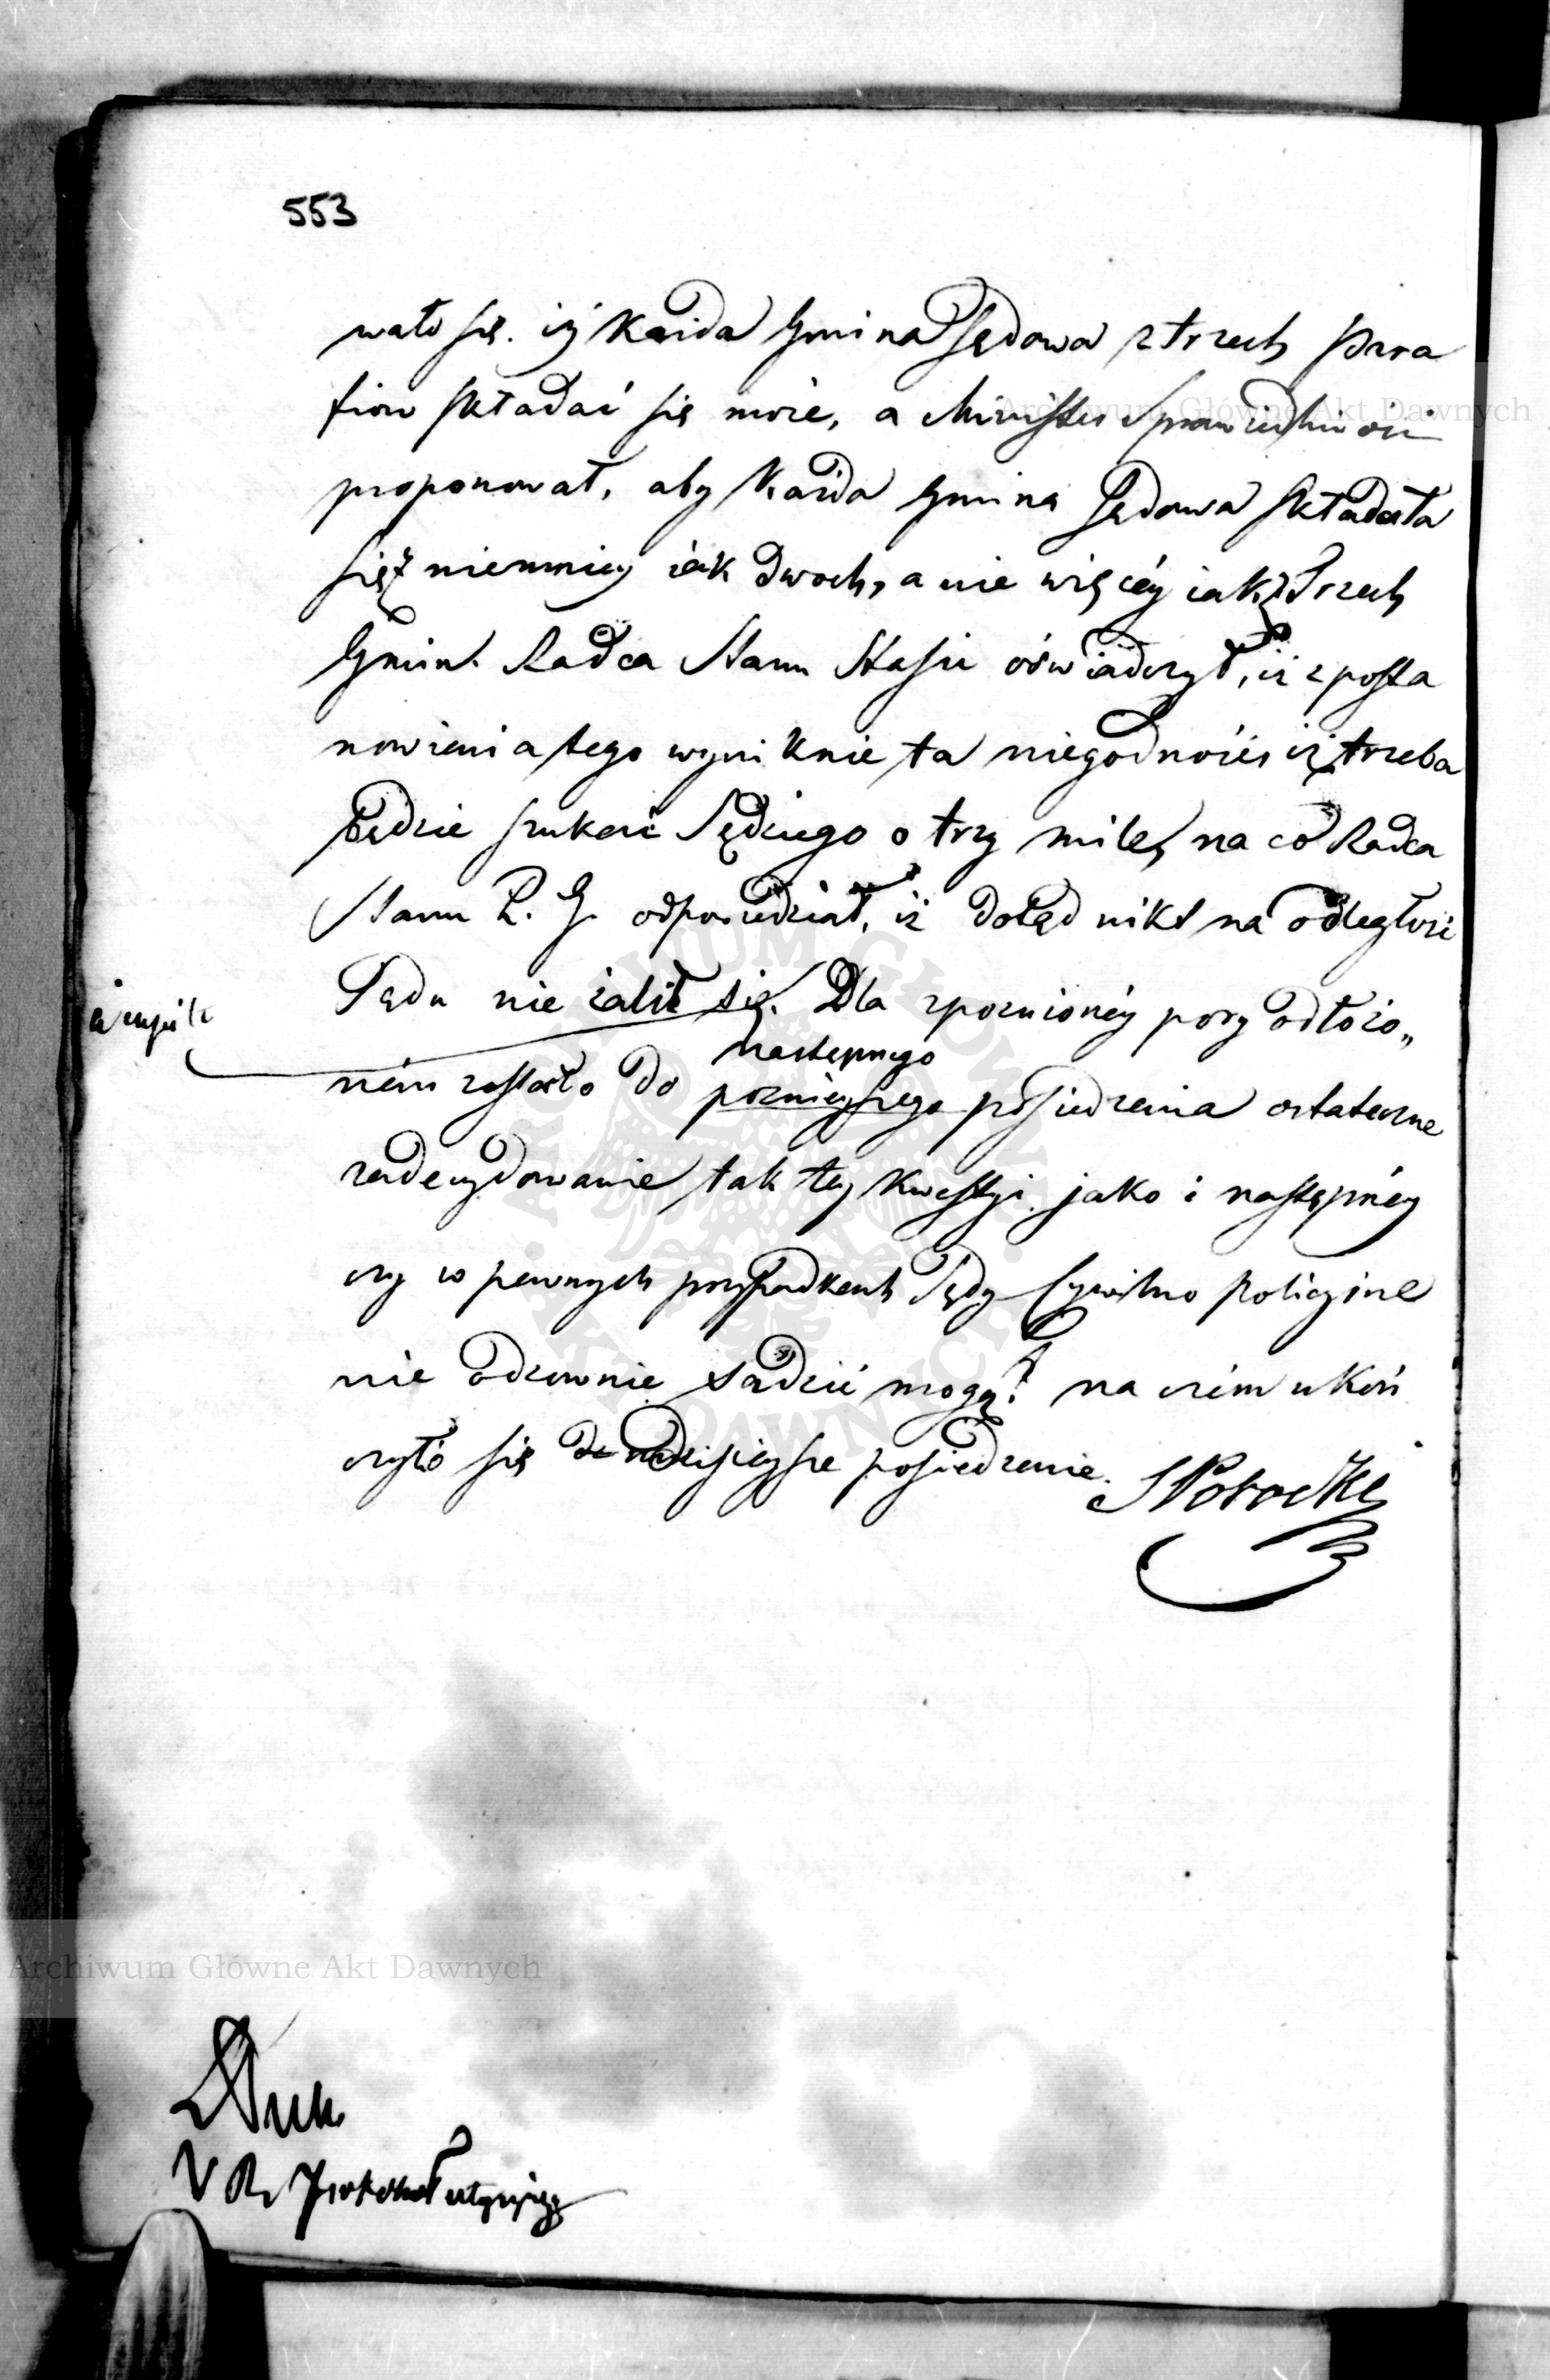 553
wało się. iż Każda Gmina Sądowa z trzech para
fiow składać się może, a Minister Sprawiedliwości
proponował, aby Każda Gmina Sądowa składała
się z niemniey iak dwoch, a nie więcéy iak z Trzech
Gmin. Radca Stanu Stasic oświadczył, iż z posta
nowienia tego wyniknie ta niegodność iż trzeba
będzie szukać Sędziego o trzy mile, na co Radca
Stanu L. G. odpowiedział, iż dotąd nikt na odległość
Sądu nie żalił się. Dla zpoznionéy pory odłożo„
następnego
ném zostało do poznieyszego posiedzenia ostateczne
zadecydowanie tak tey kwestyi jako i następnéy
czy w pewnych przypadkach Sądy Cywilno policyine
nie odzownie sądzić mogą? na czém ukoń
czyło się dzisieysze posiedzenie. S Potocki
Archiwum Główne Akt Dawnych
Archiwum Główne Akt Dawnych
V R Protokół
ARCHIWUM GŁÓWNE AKT DAWNYCH